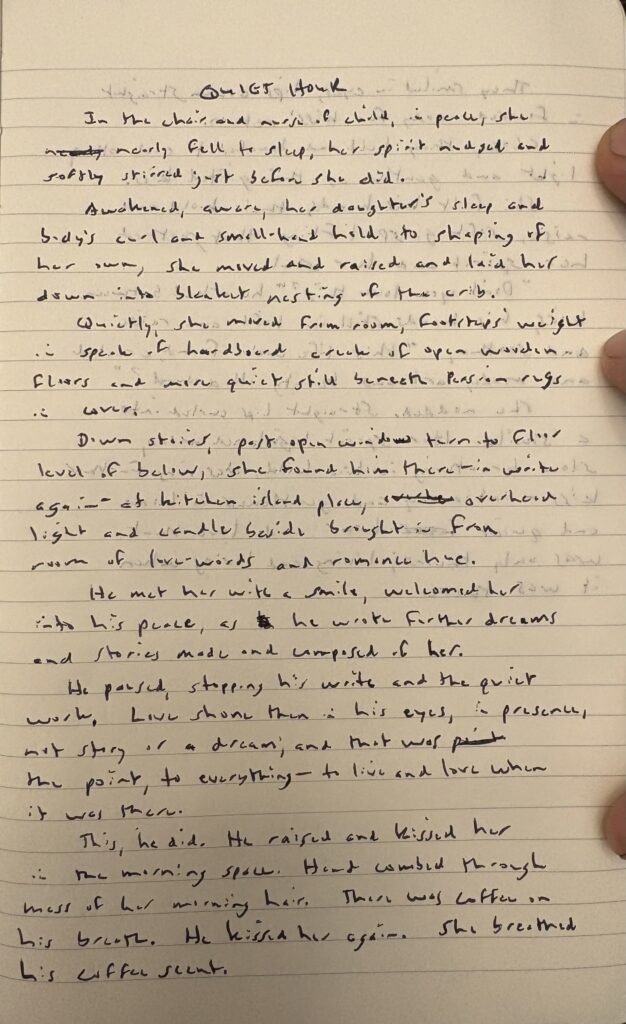 QUIET HOUR
In the chair and nurse of child, in peace, she
nearly fell to sleep, her spirit nudged and
softly stirred just before she did.
Awakened, aware, her daughter's sleep and
body's curl and small-hand hold to shaping of
her own, she moved and raised and laid her
down into blanket nesting of the crib.
Quietly, she moved from room, footsteps' weight
in speak of hardboard creak of open wooden
floors and more quiet still beneath Persian rugs
in cover.
Down stairs, past open window turn to floor
level of below, she found him there—in write
again—at kitchen island place, overhead
light and candle beside brought in from
room of love-words and romance hue.
He met her with a smile, welcomed her
into his peace, as he wrote further dreams
and stories made and composed of her.
He paused, stopping his write and the quiet
work. Love shone then in his eyes, in presence,
not story or a dream, and that was
the point, to everything—to live and love when
it was there.
This, he did. He raised and kissed her
in the morning space. Hand combed through
mess of her morning hair. There was coffee on
his breath. He kissed her again. She breathed
his coffee scent.